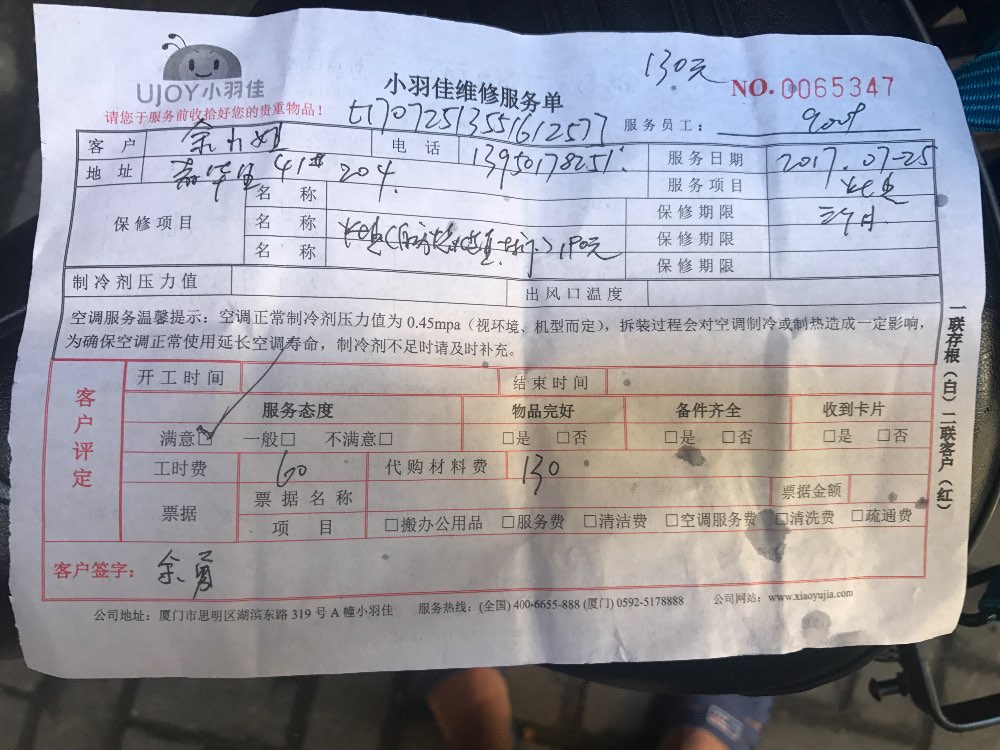 UJOY小羽佳
130元
小羽佳维修服务单
NO.0065347
请您于服务前收拾好您的贵重物品！
t17072513551612577
服务员工：
客户
电话 13950178251
服务日期 2017.07-25
地址 41# 204
服务项目
保修项目
名称
保修期限 三个月
名称
保修期限
名称
保修期限
制冷剂压力值
出风口温度
空调服务温馨提示：空调正常制冷剂压力值为 0.45mpa（视环境、机型而定），拆装过程会对空调制冷或制热造成一定影响，
为确保空调正常使用延长空调寿命，制冷剂不足时请及时补充。
一联存根（白）二联客户（红）
客户评定
开工时间
结束时间
服务态度 物品完好 备件齐全 收到卡片
满意□ 一般□ 不满意□ □是 □否 □是 □否 □是 □否
工时费 60 代购材料费 130
票据
票据名称 票据金额
项目 □搬办公用品 □服务费 □清洁费 □空调服务费 □清洗费 □疏通费
客户签字： 余勇
公司地址：厦门市思明区湖滨东路 319 号 A 幢小羽佳 服务热线：(全国) 400-6655-888 (厦门) 0592-5178888 公司网站：www.xiaoyujia.com